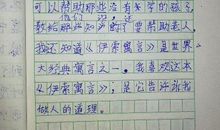 可以帮助那些没有关学的孩子
们们 没
教给那些知识的了要帮助老人,
我还知道《伊索寓言》是世界
大经典寓言之一。我喜欢这本
《伊索寓言》,是它告诉我
做人的道理。